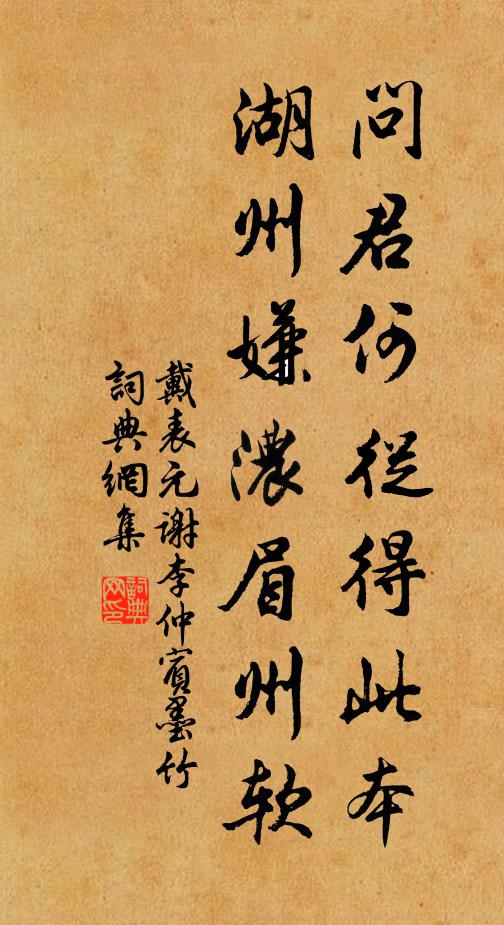 問君何從得此本
湖州嫌濃眉州软
戴表元謝李仲賓墨竹
詞典網集
詞典
网印